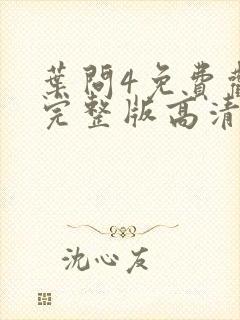 葉問4免費
完整版高清
沈心友